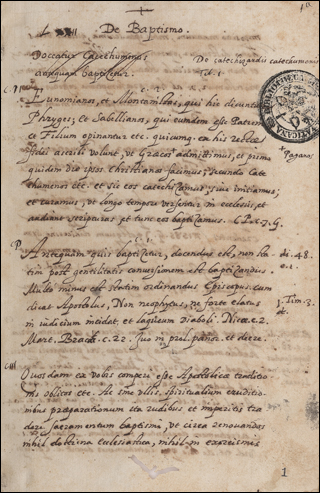 De Baptismo.
Doceatur Catechumenus
antequam baptizetur.
De catechizandis catechumenis
Tit. 1.
BIBLIOTHECA
VATICANA
Eunomianos, et Montanistas, qui hic dicuntur
Phryges; et Sabellianos, qui eundem esse Patrem
et Filium opinantur etc. quicunq. ex his rectae
fidei ascribi volunt, ut Graecos admittimus, et primo
quidem die ipsos Christianos facimus; secundo Cate
chumenos etc. et sic eos catechizamus, sive initiamus;
et curamus, ut longo tempore versentur in ecclesia, et
audiant scripturas, et tunc eos baptizamus.
x Paganos
P. Antequam quis baptizetur, docendus est, non sta-
tim post gentilitatis conversionem est baptizandus.
Multo minus est statim ordinandus Episcopus. cum
dicat Apostolus, Non neophytus, ne forte elatus
in iudicium incidat, et laqueum Diaboli. Nicae. c. 2.
Mart. Brach. c. 22. Ivo in prol. panor. et decre.
di. 48.
c. 1.
1. Tim. 3.
Quos dam ex vobis comperi esse Apostolicae traditio-
nis oblitos etc. spiritualium eruditio-
nibus praeparationum ita rudibus et imperitis tra
deri sacramentum baptismi, ut circa renovandos
nihil doctrina ecclesiastica, nihil in exorcismis
1